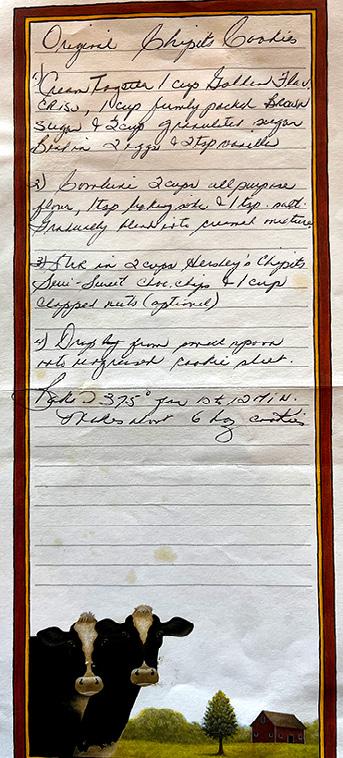 Original Chipits Cookies
1) Cream Together 1 cup Golden Flav.
Crisco, 1 cup firmly packed Brown
Sugar & 1/2 cup granulated sugar
Beat in 2 eggs & 2 tsp vanilla
2) Combine 2 cups all purpose
flour, 1 tsp baking soda & 1 tsp. salt.
Gradually blend into creamed mixture
3) Stir in 2 cups Hershey's Chipits
Semi-Sweet Choc. chips & 1 cup
chopped nuts (optional)
4) Drop by from small spoon
onto ungreased cookie sheet.
Bake 375° for 10 to 12 Min.
Makes about 6 doz cookies